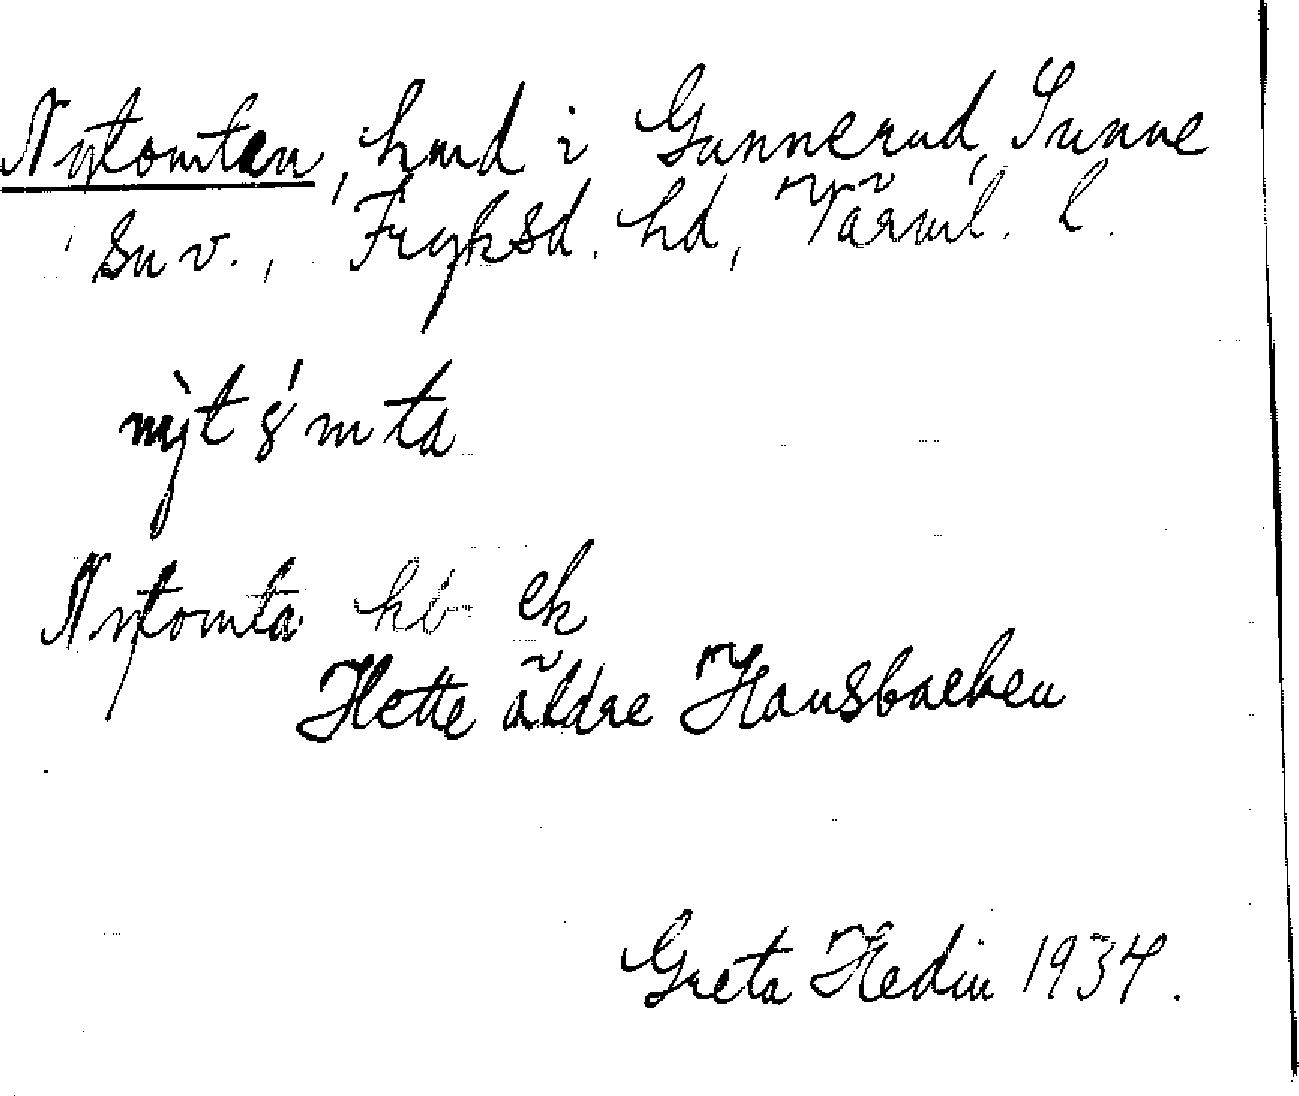 Nytomten, hmd i Gunnerud, Sunne
sn v., Fryksd. hd, Värml. l.
nỳt ó̤mta
Nytomta kb ek
Hette äldre Hansbacken
Greta Hedin 1934.